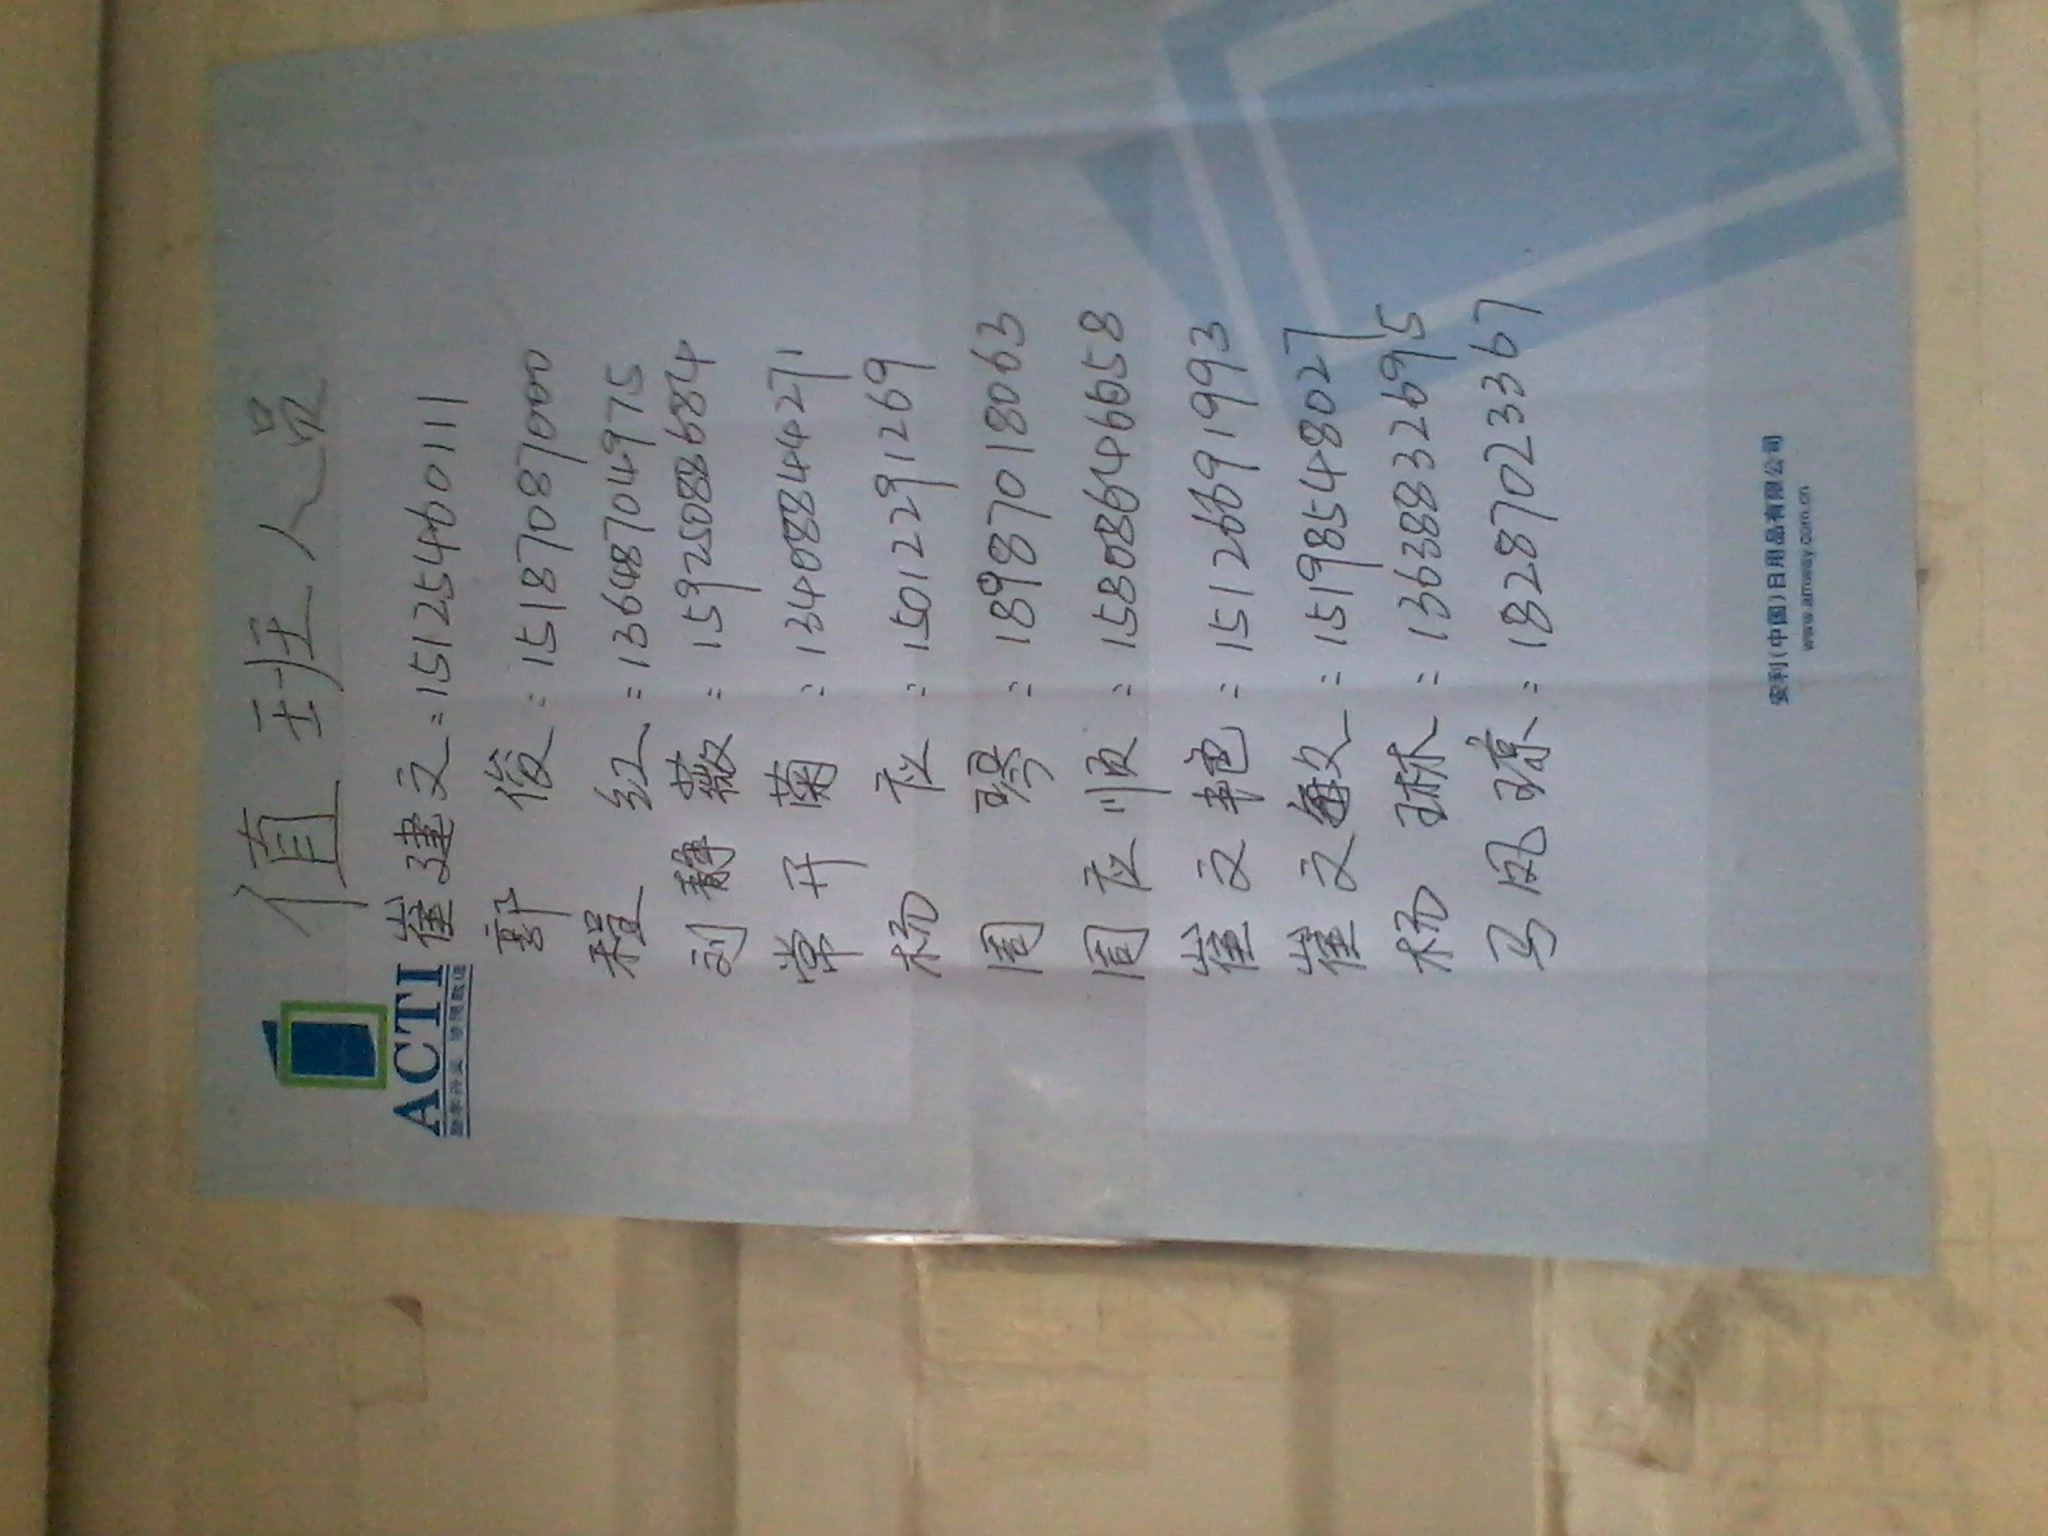 值班人员
ACTI
崔建文：15125460111
郭俊：15187087000
程红：13648704975
刘静薇：15925088684
常开菊：13408844271
杨应：15012291269
周琴：18987018063
周应顺：15808646658
崔文艳：15126691993
崔文敏：15198548027
杨琳：13638832695
马凤琼：18287023367
安利(中国)日用品有限公司
www.amway.com.cn